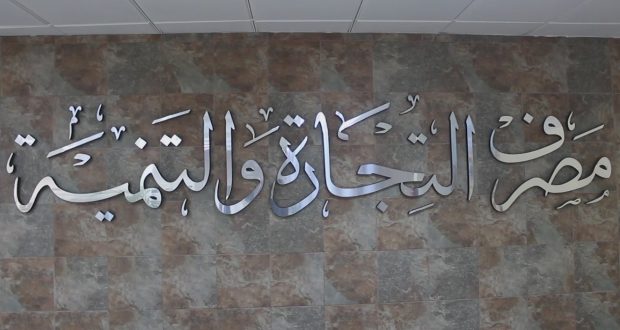 مصرف التجارة والتنمية